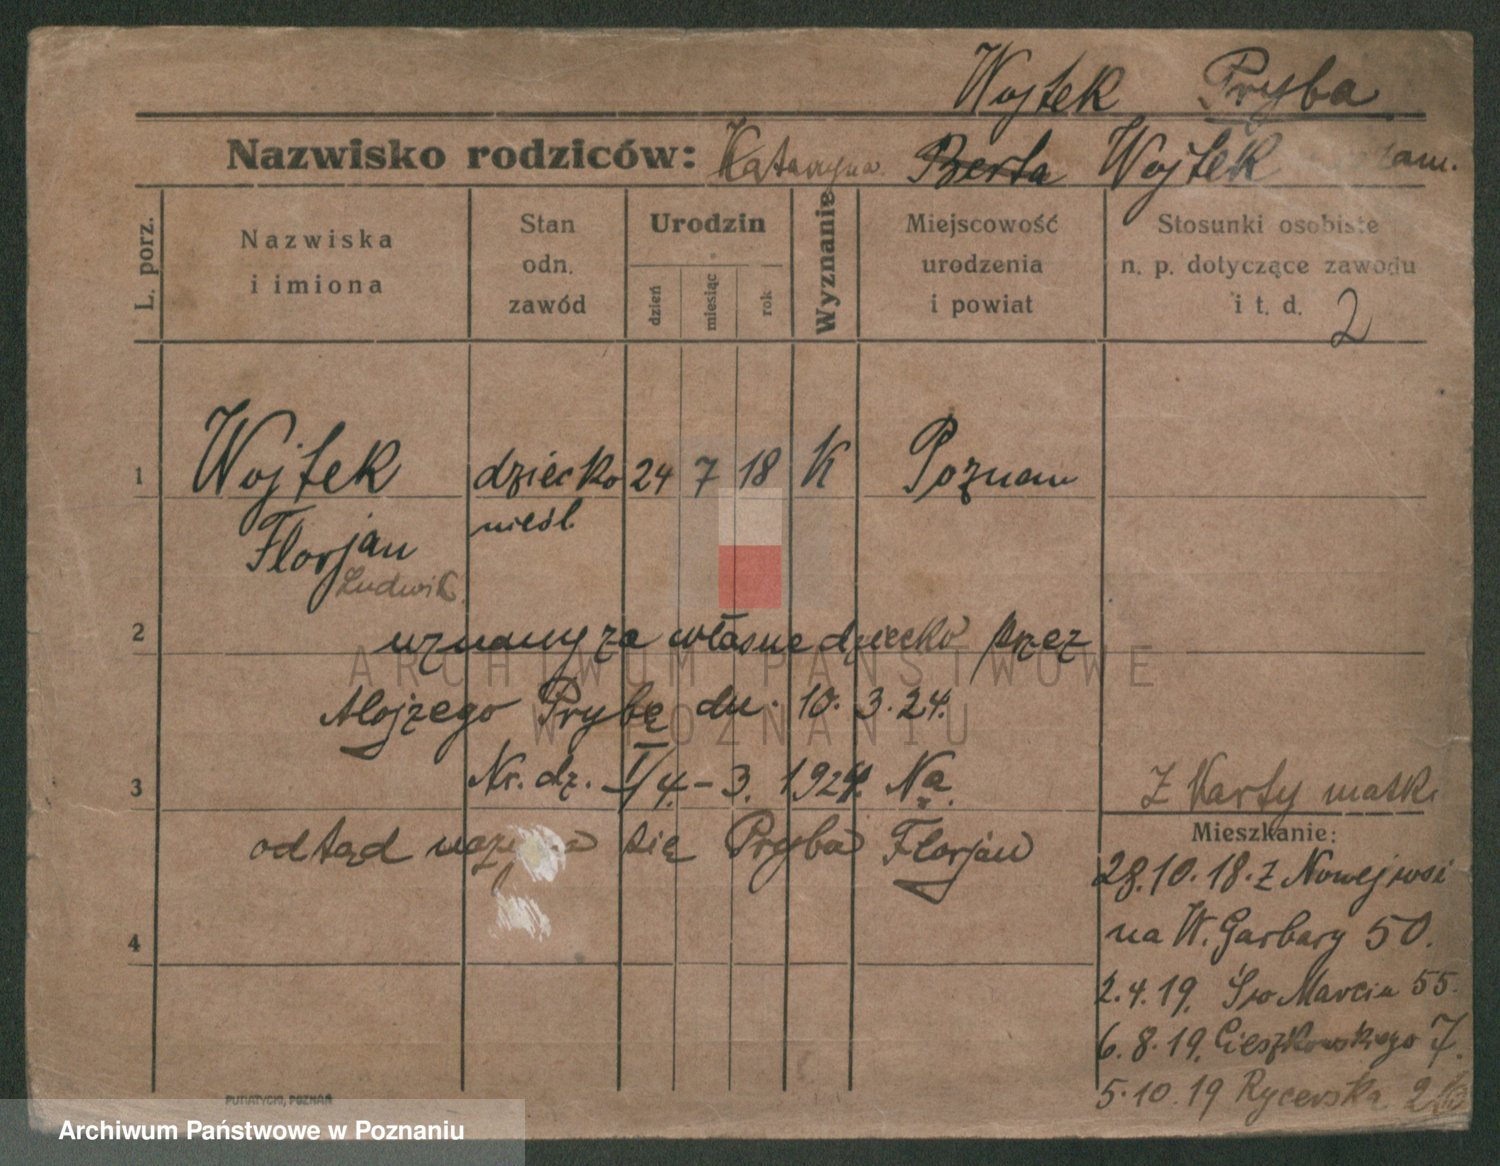 Wojtek Pryba
Nazwisko rodziców: Katarzyna Berta Wojtek zam.
L. porz.
Nazwiska
i imiona
Stan
odn.
zawód
Urodzin
dzień
miesiąc
rok
Wyznanie
Miejscowość
urodzenia
i powiat
Stosunki osobiste
n. p. dotyczące zawodu
i t. d. 2
1 Wojtek dziecko 24 7 18 K Poznan
nieśl.
Florjan
Ludwik
2 uznany za własne dziecko przez
Alojzego Prybę dn. 10. 3. 24.
3 Nr. dz. I/4.-3. 1924. Na
odtąd nazywa się Pryba Florjan
4
Z Karty matki
Mieszkanie:
28.10.18. z Nowejwsi
na W. Garbary 50.
2.4.19. Św Marcin 55.
6.8.19. Cieszkowskiego 7.
5.10.19 Rycerska
PUTIATYCKI, POZNAŃ
ARCHIWUM PAŃSTWOWE
W POZNANIU
Archiwum Państwowe w Poznaniu